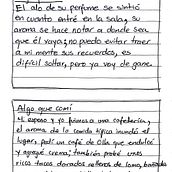 El alo de su perfume se sintió
en cuanto entré en la sala, su
aroma se hace notar a donde sea
que él vaya; no puedo evitar traer
a mi mente sus recuerdos, es
difícil soltar, pero ya voy de gane.
Algo que comí
Mi esposo y yo fuimos a una cafetería,
el aroma de la comida típica inundó el
lugar, pedí un café de Olla que endulcé
y agregué crema; también probé unos
ricos tacos dorados rellenos de lomo, bañados